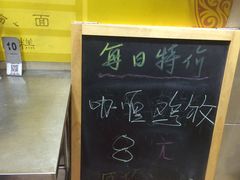 面
10
糕
每日特价
咖喱鸡饭
8元